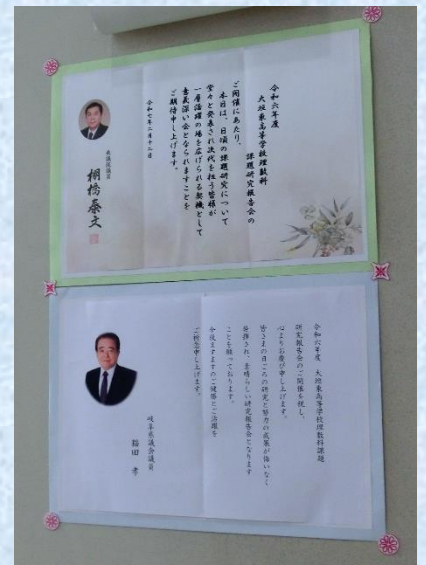 令和六年度
大垣東高等学校理数科
課題研究報告会の
ご開催にあたり、
本日は、日頃の課題研究について
堂々と発表され次代を担う皆様が
一層活躍の場を広げられる契機として
意義深い会となられますことを
ご期待申し上げます。
令和七年二月十二日
衆議院議員
棚橋泰文
令和六年度 大垣東高等学校理数科課題
研究報告会のご開催を祝し、
心よりお慶び申し上げます。
皆さまの日ごろの研究と努力の成果が悔いなく
発揮され、素晴らしい研究報告会となります
ことを願っております。
今後ますますのご健勝とご活躍を
ご祈念申し上げます。
岐阜県議会議員
稲田 孝